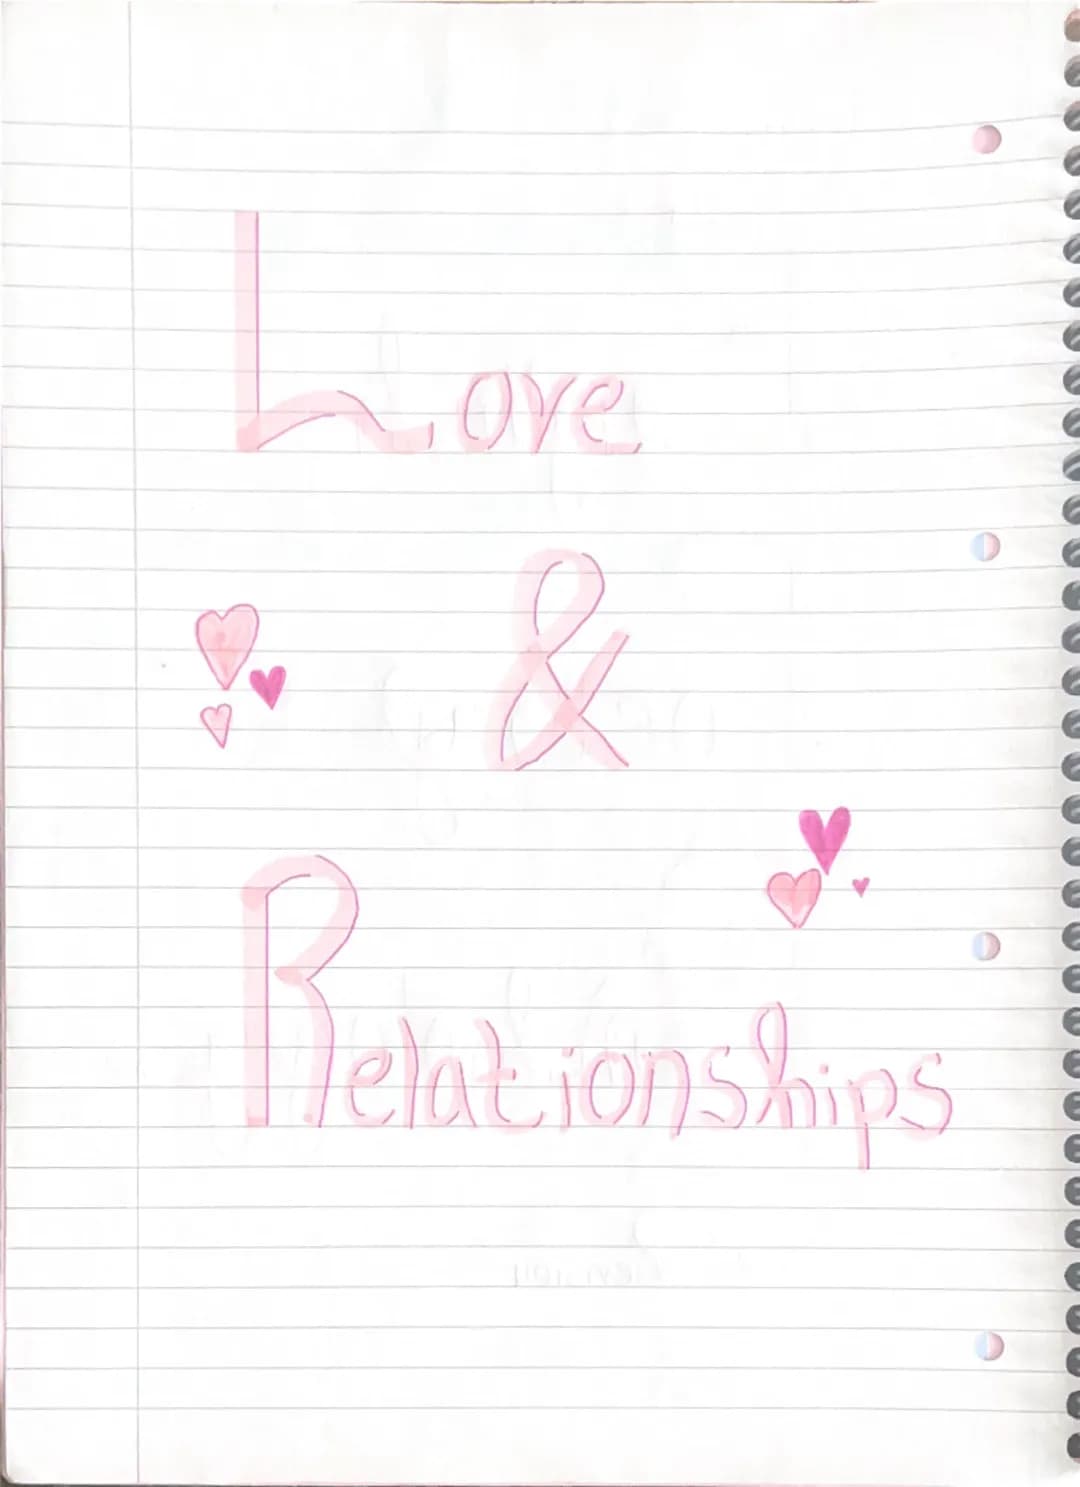 Love
&
Relationships